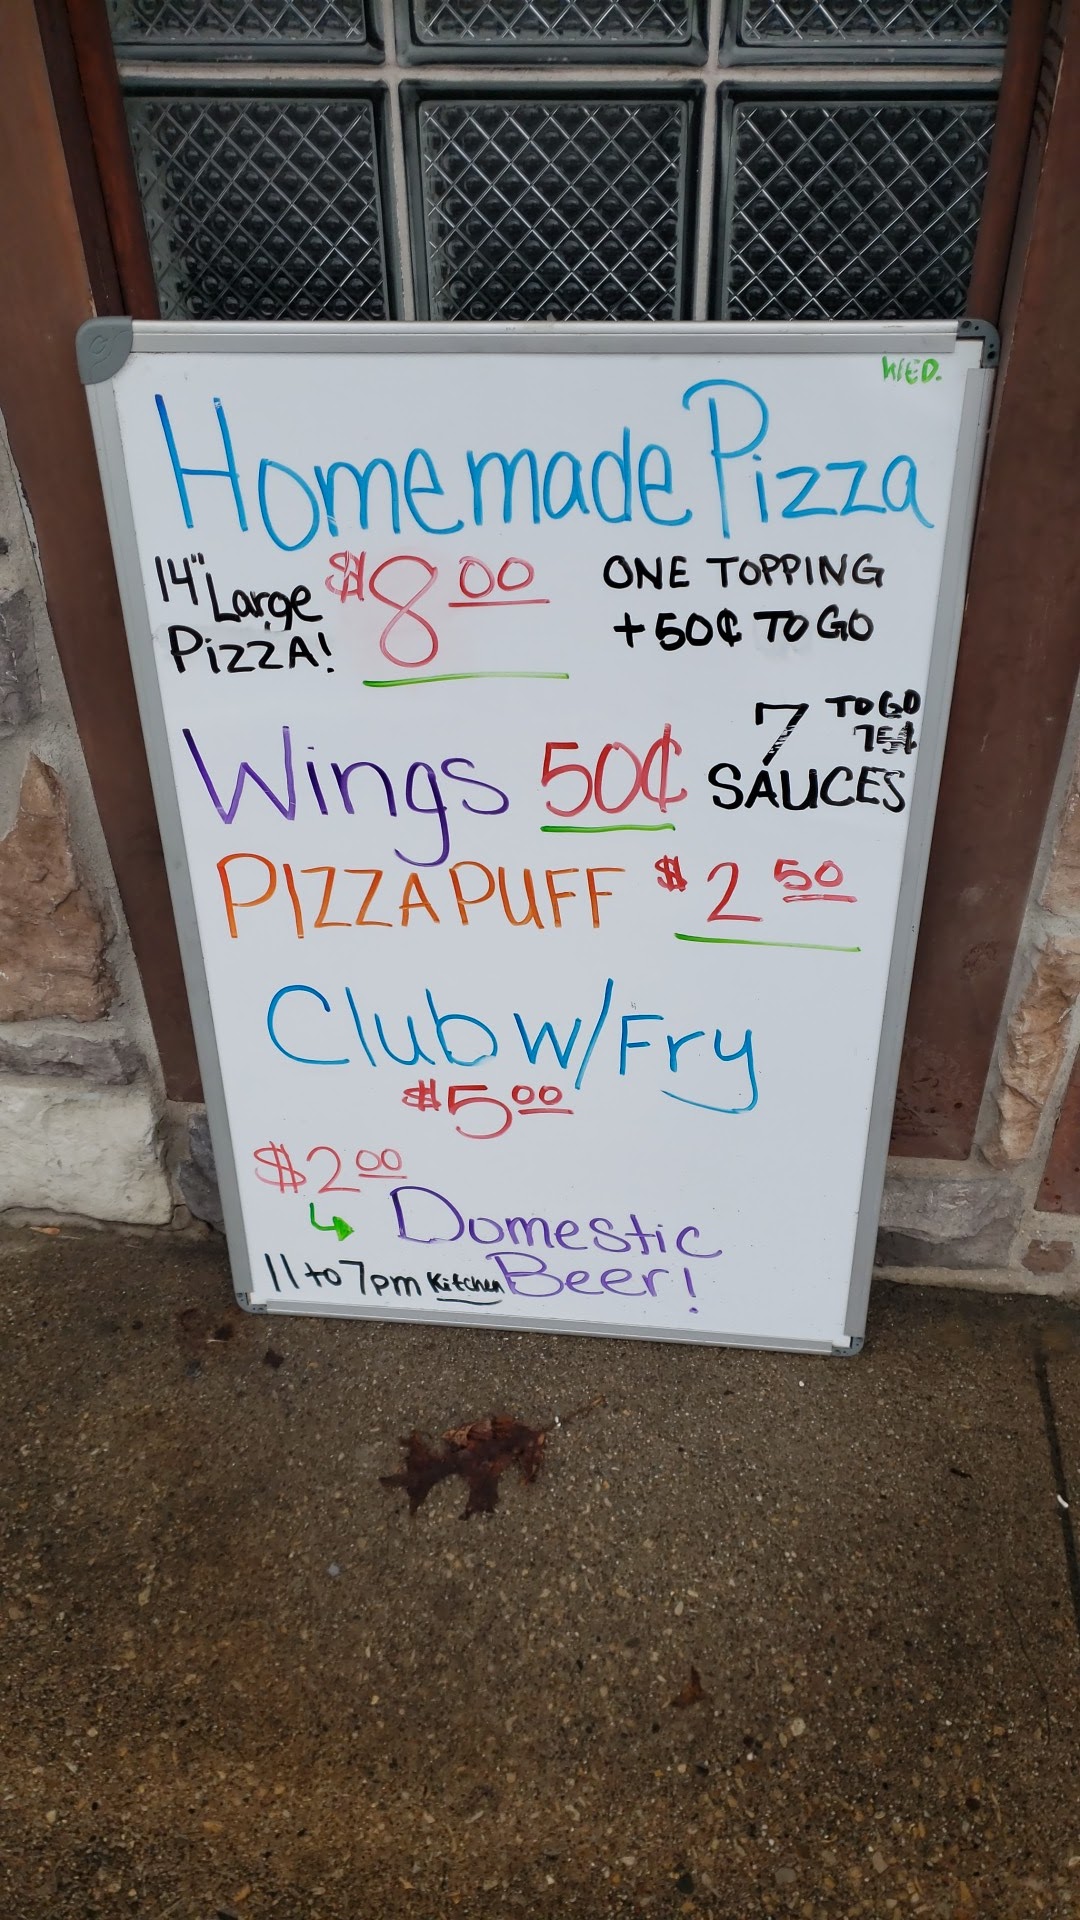 WED.
Homemade Pizza
14" Large Pizza! $8.00
ONE TOPPING
+50¢ TO GO
Wings 50¢
7 SAUCES
TO GO
75¢
PIZZA PUFF $2.50
Club w/Fry
$5.00
$2.00
Domestic
Beer!
11 to 7pm Kitchen